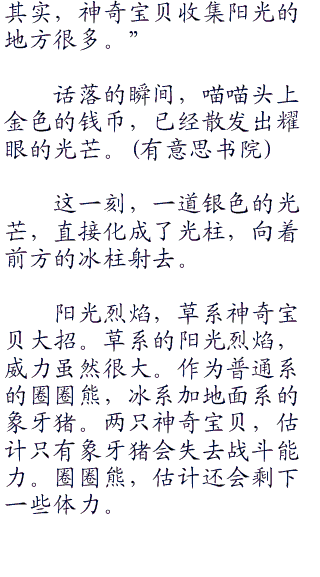 其实，神奇宝贝收集阳光的
地方很多。”
话落的瞬间，喵喵头上
金色的钱币，已经散发出耀
眼的光芒。(有意思书院)
这一刻，一道银色的光
芒，直接化成了光柱，向着
前方的冰柱射去。
阳光烈焰，草系神奇宝
贝大招。草系的阳光烈焰，
威力虽然很大。作为普通系
的圈圈熊，冰系加地面系的
象牙猪。两只神奇宝贝，估
计只有象牙猪会失去战斗能
力。圈圈熊，估计还会剩下
一些体力。